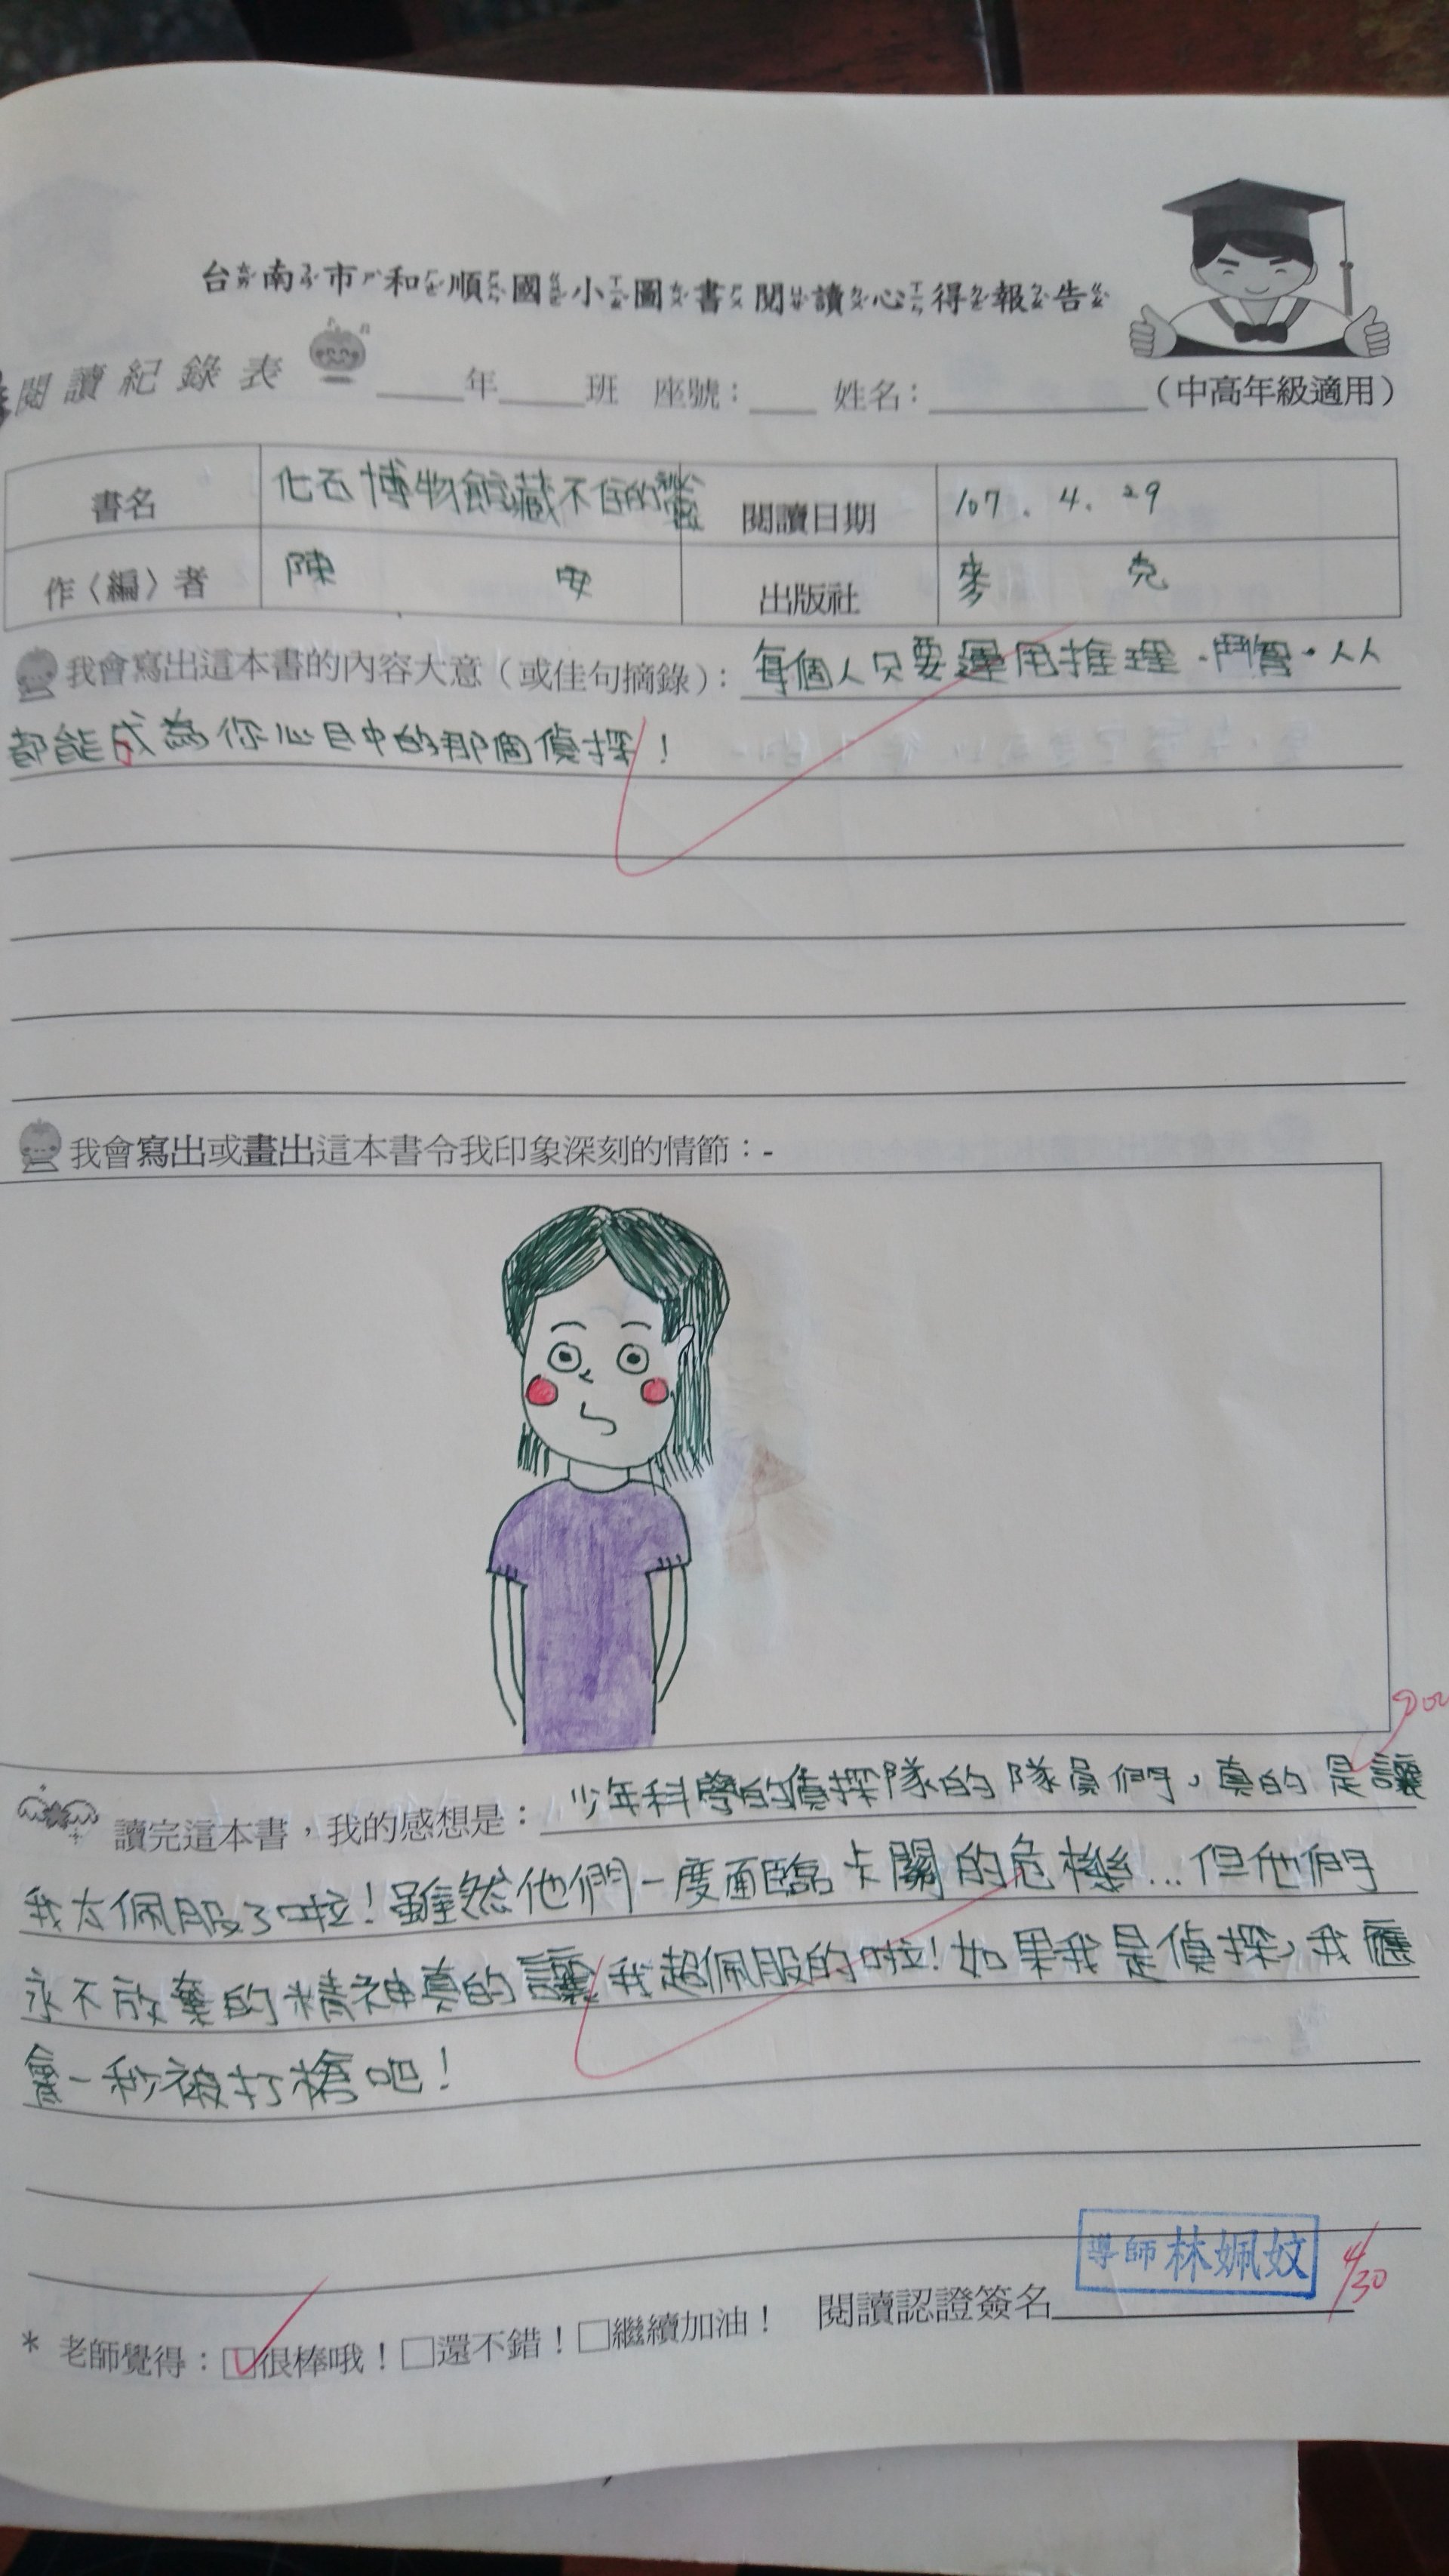 台南市和順國小圖書閱讀心得報告
閱讀紀錄表 ____年____班 座號：___ 姓名：________（中高年級適用）
書名 化石博物館藏不住的 閱讀日期 107．4．29
作〈編〉者 陳 安 出版社 麥 克
我會寫出這本書的內容大意（或佳句摘錄）：每個人只要運用推理、鬥智，人人
都能成為你心目中的那個偵探！
我會寫出或畫出這本書令我印象深刻的情節：-
讀完這本書，我的感想是：少年科學的偵探隊的隊員們，真的是讓
我太佩服了啦！雖然他們一度面臨卡關的危機…但他們
永不放棄的精神真的讓我超佩服的啦！如果我是偵探，我應
會一秒被打槍吧！
導師 林姵妏 4/30
* 老師覺得：☑很棒哦！□還不錯！□繼續加油！ 閱讀認證簽名